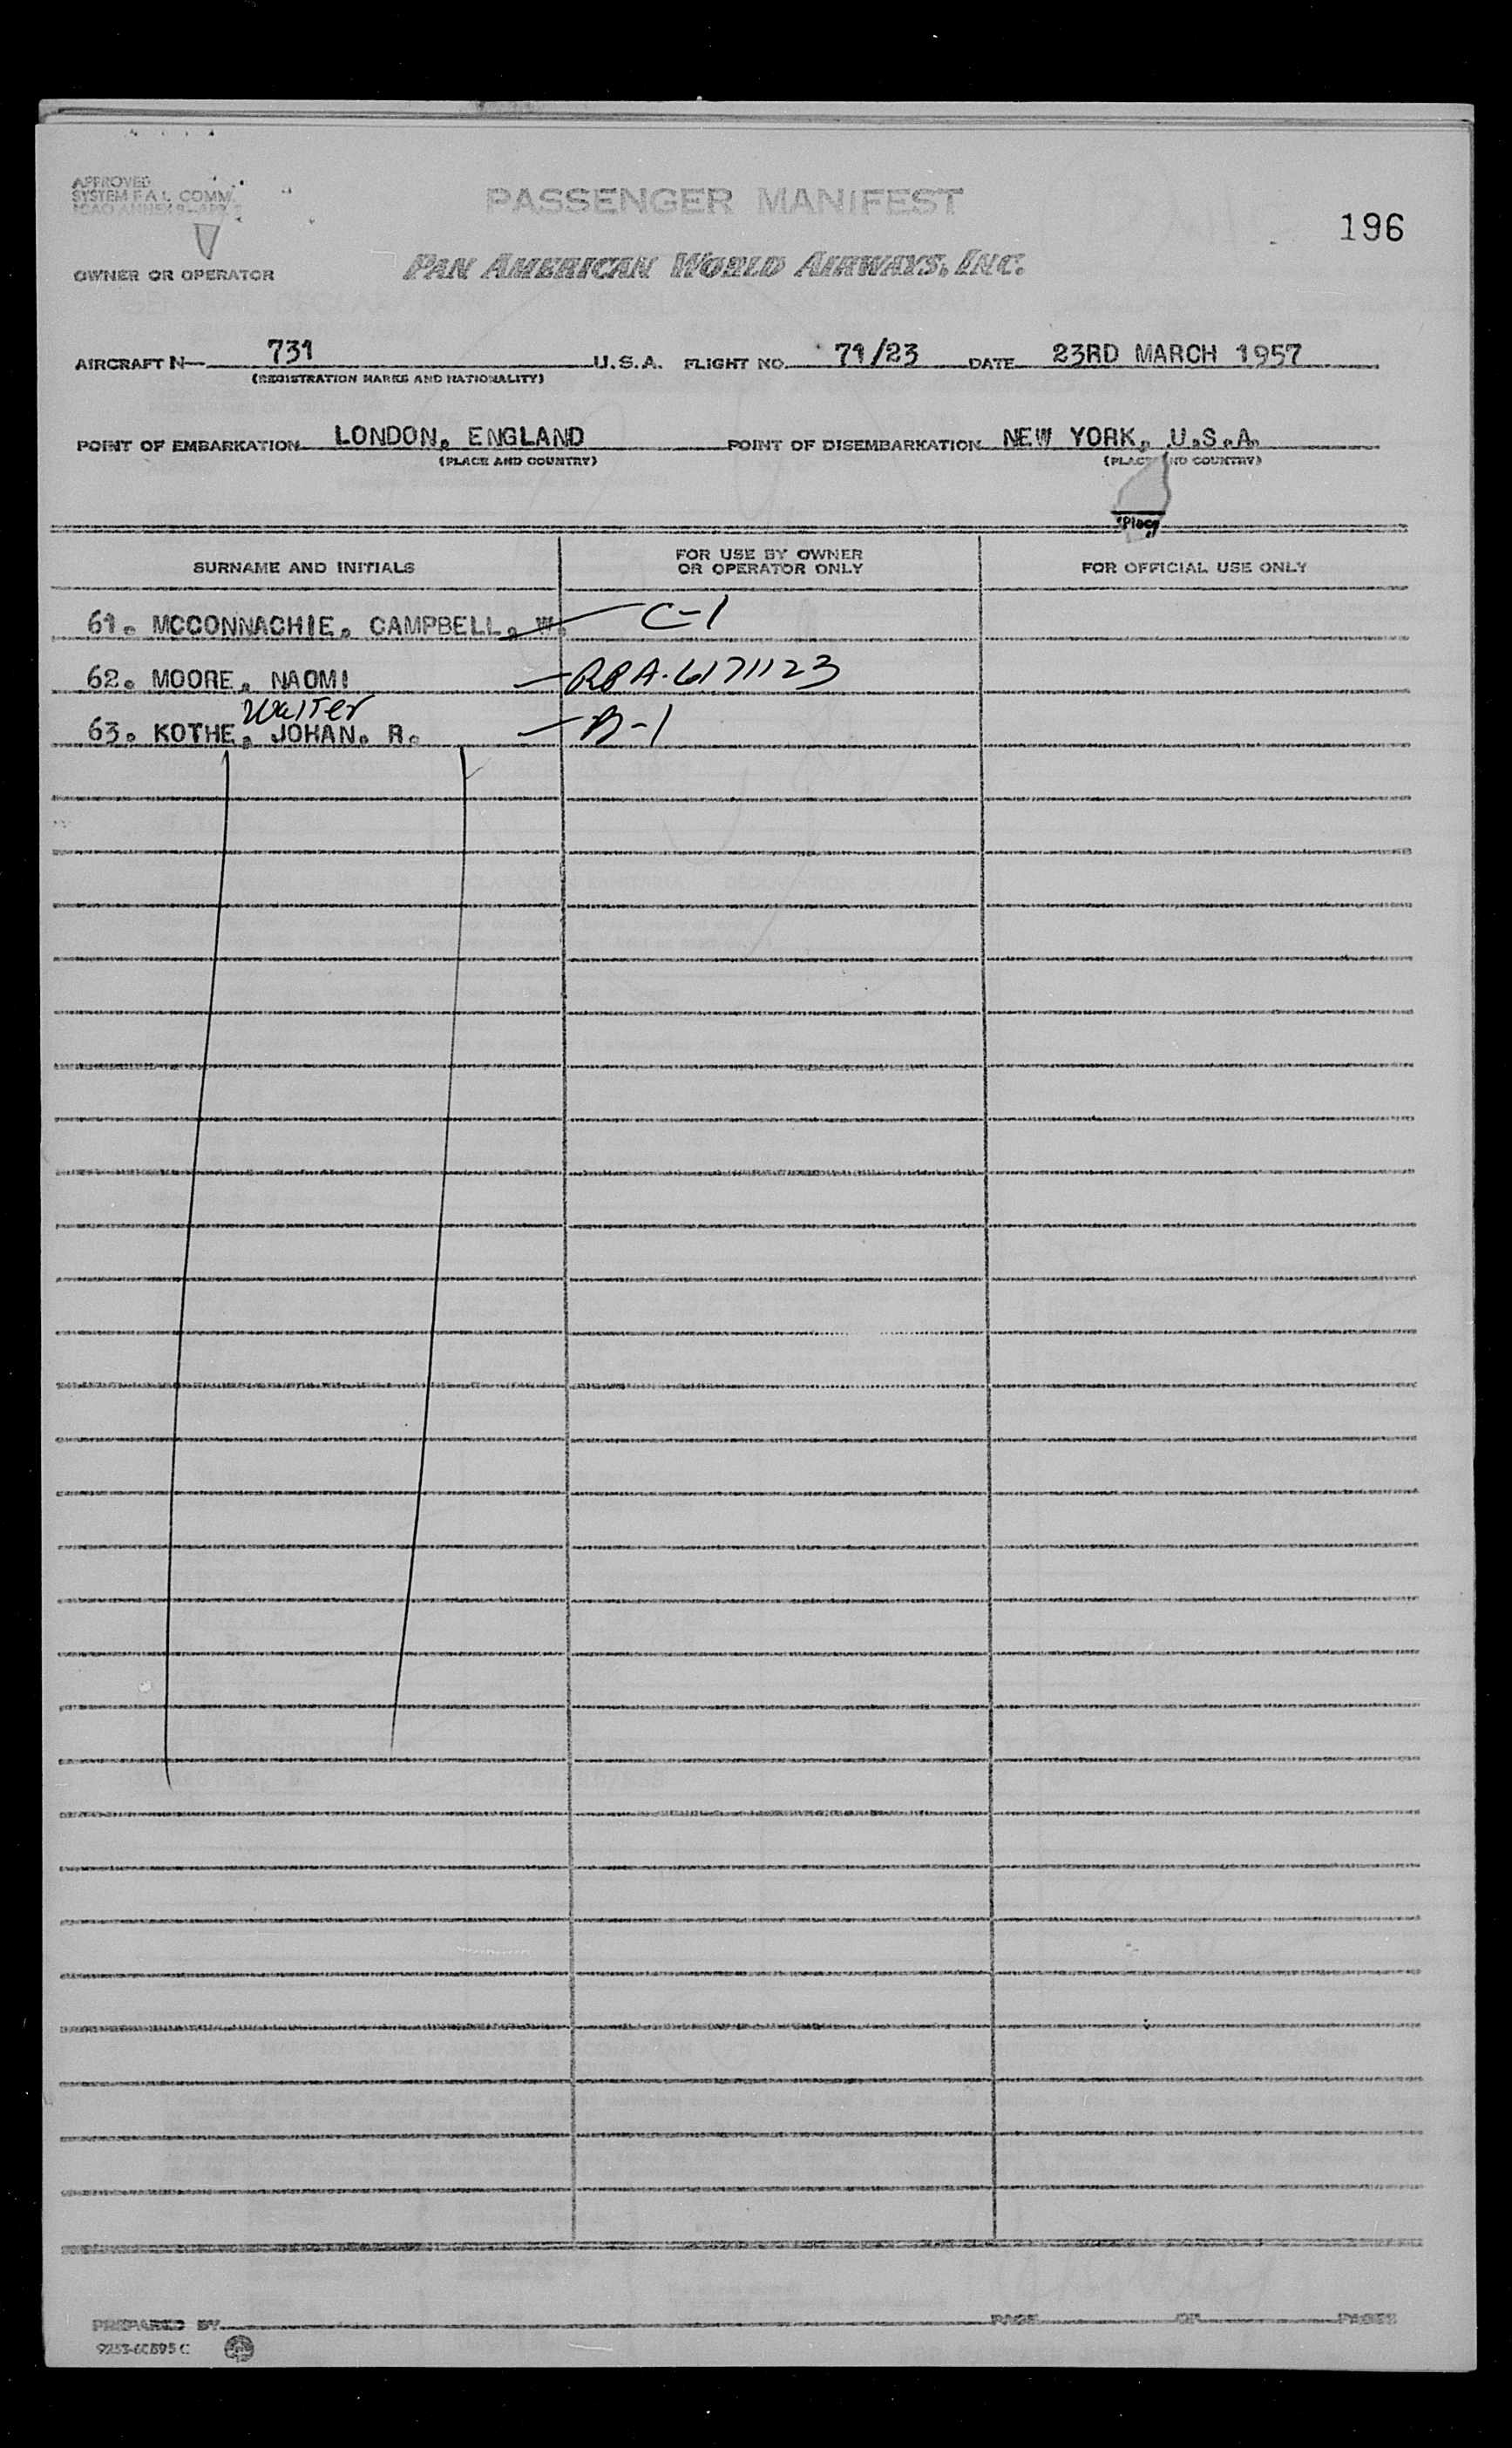 APPROVED
SYSTEM F A L COMM.
ICAO ANNEX 9-APP. 2
PASSENGER MANIFEST
196
OWNER OR OPERATOR
PAN AMERICAN WORLD AIRWAYS, INC.
AIRCRAFT N— 731 U.S.A. FLIGHT NO. 71/23 DATE 23RD MARCH 1957
(REGISTRATION MARKS AND NATIONALITY)
POINT OF EMBARKATION LONDON, ENGLAND POINT OF DISEMBARKATION NEW YORK, U.S.A.
(PLACE AND COUNTRY) (PLACE ND COUNTRY)
"Place"
SURNAME AND INITIALS FOR USE BY OWNER OR OPERATOR ONLY FOR OFFICIAL USE ONLY
61. MCCONNACHIE, CAMPBELL, W. C-1
62. MOORE, NAOMI — RPA-6171123
Walter
63. KOTHE, JOHAN. R. — B-1
PREPARED BY PAGE OF PAGES